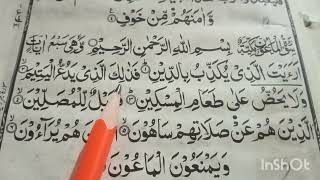 وَّاٰمَنَهُمْ مِّنْ خَوْفٍ
بِسْمِ اللّٰهِ الرَّحْمٰنِ الرَّحِيْمِ
اَرَءَيْتَ الَّذِيْ يُكَذِّبُ بِالدِّيْنِ فَذٰلِكَ الَّذِيْ يَدُعُّ الْيَتِيْمَ
وَلَا يَحُضُّ عَلٰى طَعَامِ الْمِسْكِيْنِ فَوَيْلٌ لِّلْمُصَلِّيْنَ
الَّذِيْنَ هُمْ عَنْ صَلَاتِهِمْ سَاهُوْنَ الَّذِيْنَ هُمْ يُرَآءُوْنَ
وَيَمْنَعُوْنَ الْمَاعُوْنَ
InShOt